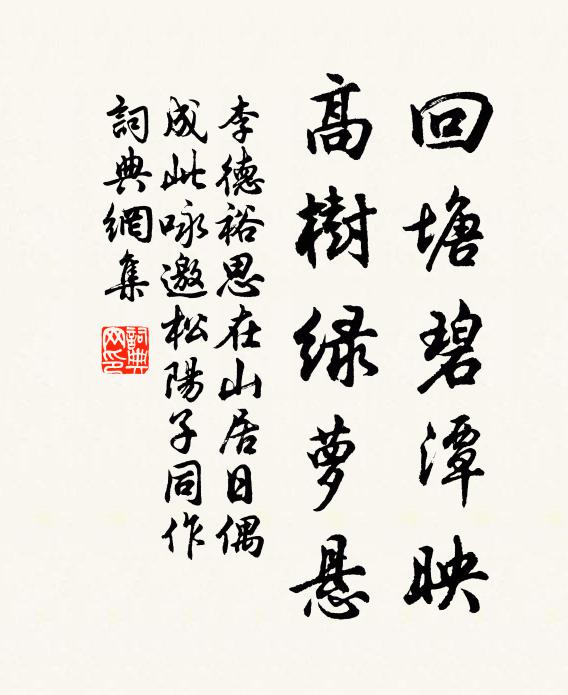 回塘碧潭映
高樹緑萝悬
李德裕思在山居日偶
成此咏邀松陽子同作
詞典網集
詞典网印